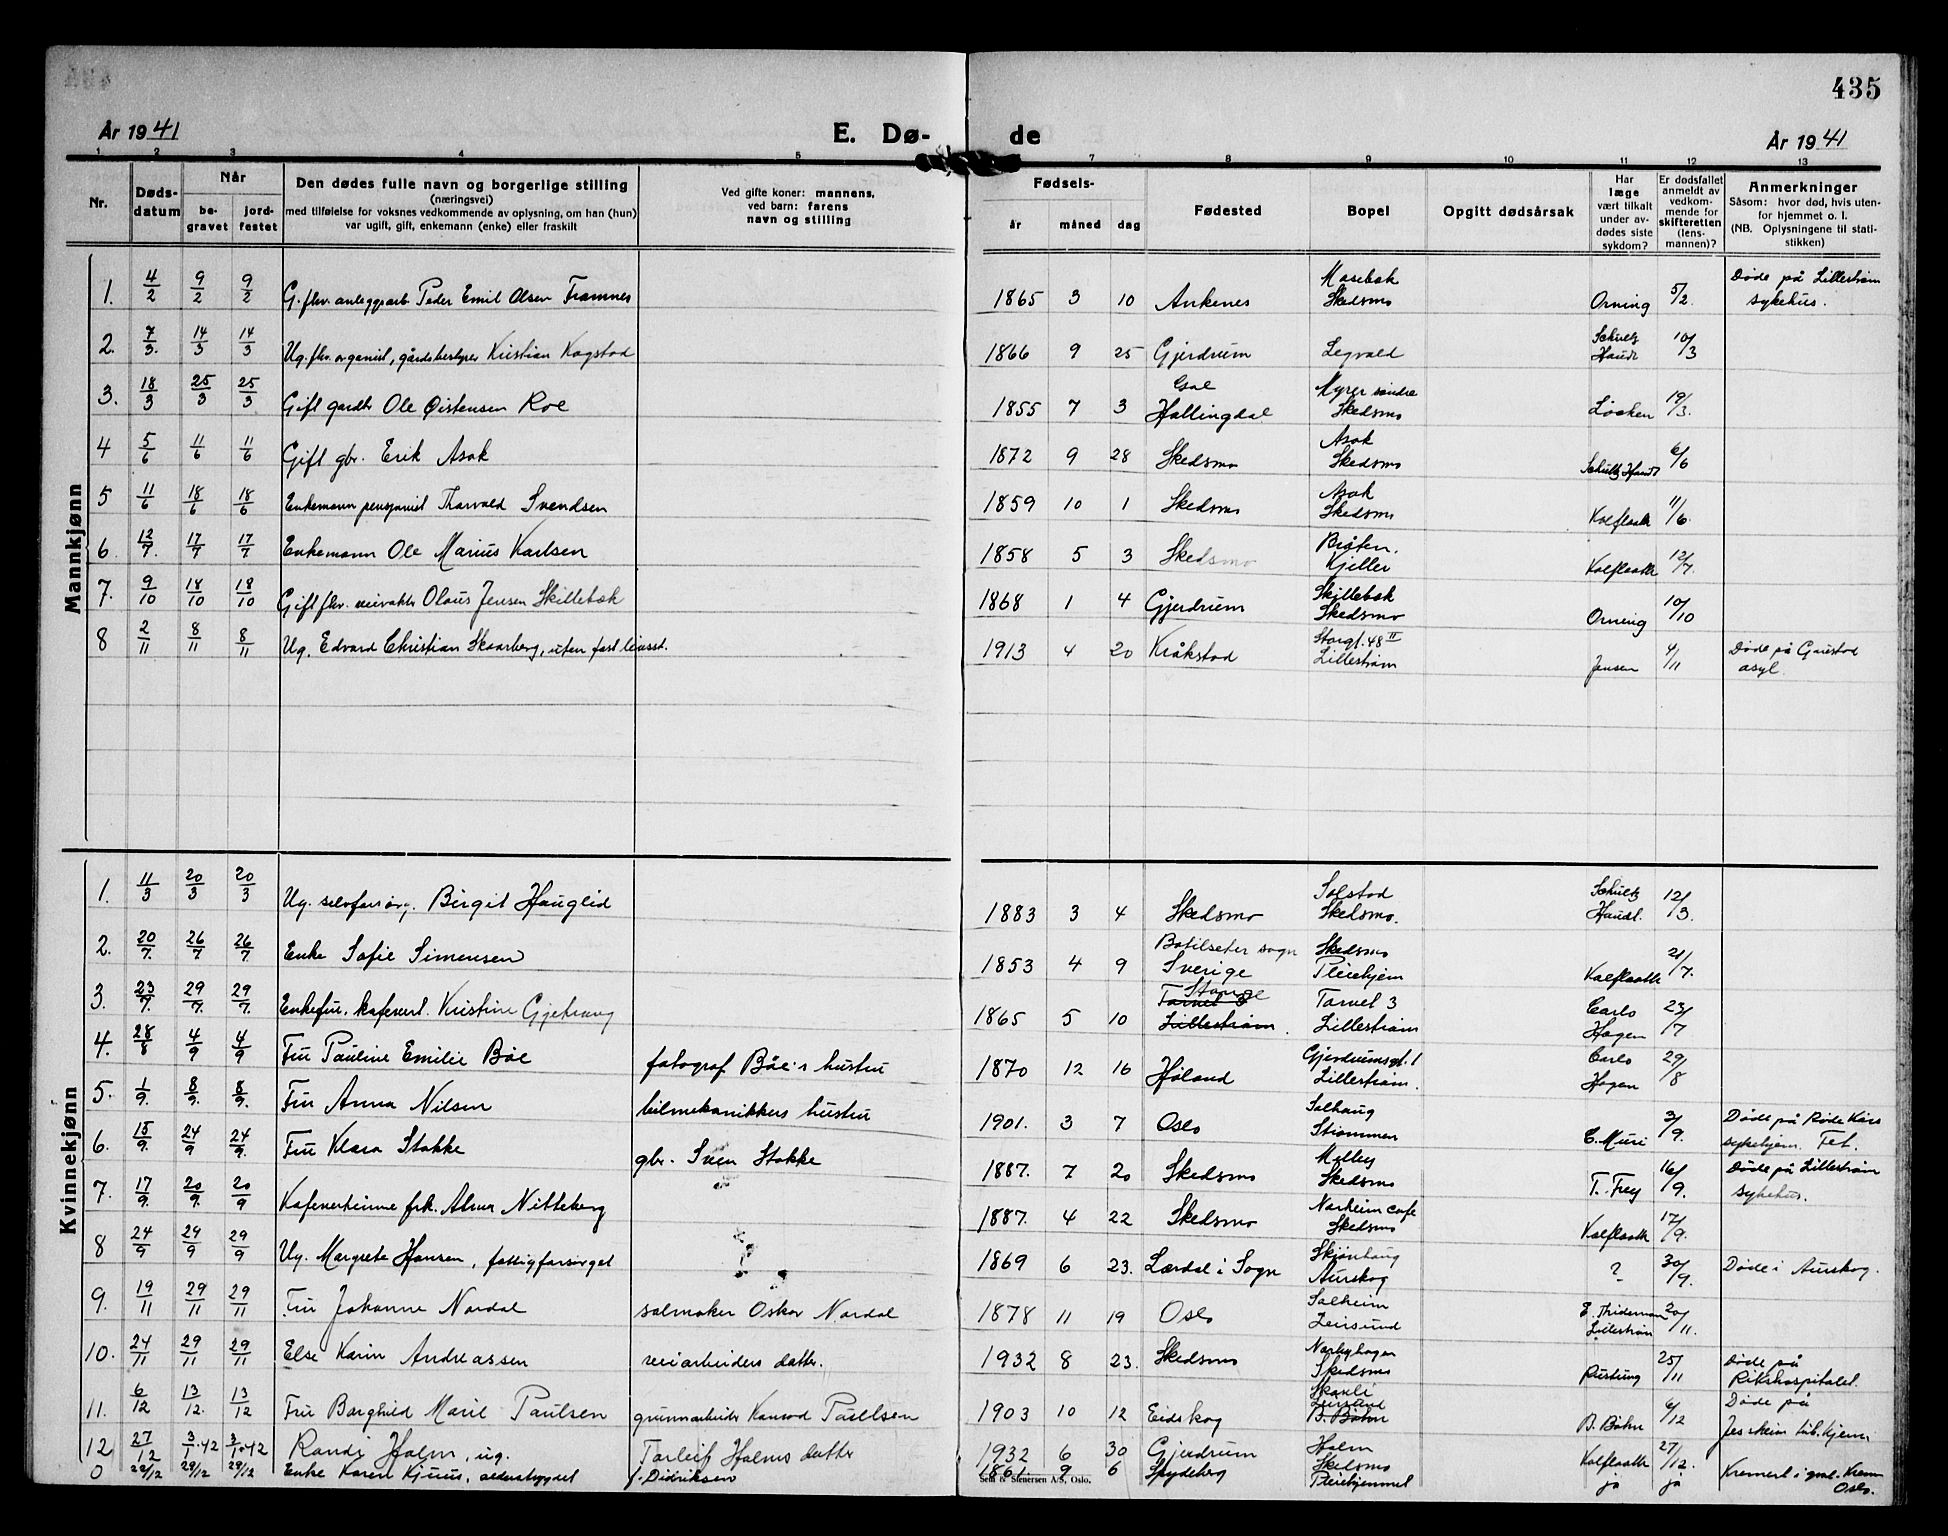 435
År 1941
E. Dø-
de
År 1941
1 2 3 4 5 7 8 9 10 11 12 13
Nr.
Døds-
datum
Når
be-
gravet
jord-
festet
Den dødes fulle navn og borgerlige stilling
(næringsvei)
med tilføielse for voksnes vedkommende av oplysning, om han (hun)
var ugift, gift, enkemann (enke) eller fraskilt
Ved gifte koner: mannens,
ved barn: farens
navn og stilling
Fødsels-
år måned dag
Fødested
Bopel
Opgitt dødsårsak
Har
læge
vært tilkalt
under av-
dødes siste
sykdom?
Er dødsfallet
anmeldt av
vedkom-
mende for
skifteretten
(lens-
mannen)?
Anmerkninger
Såsom: hvor død, hvis uten-
for hjemmet o. l.
(NB. Oplysningene til stati-
stikken)
Mannkjønn
1. 4/2 9/2 9/2 G. fhv. anleggsarb. Peder Emil Olsen Framnes 1865 3 10 Ankenes Mosebak Skedsmo Orning 5/2 Døde på Lillestrøm sykehus.
2. 7/3. 14/3 14/3 Ug. fhv. organist, gårdsbestyrer Kristian Kogstad 1866 9 25 Gjerdrum Legvold Schultz Haudt 10/3
3. 18/3 25/3 25/3 Gift gardbr Ole Øistensen Roe 1855 7 3 Gol Hallingdal Myrer søndre Skedsmo Løcken 19/3.
4 5/6 11/6 11/6 Gift gbr. Erik Asak 1872 9 28 Skedsmo Asak Skedsmo Schultz Haudt 6/6
5 11/6 18/6 18/6 Enkemann pensjonist Thorvald Svendsen 1859 10 1 Skedsmo Asak Skedsmo Kolflaath 11/6.
6. 12/7. 17/7 17/7 Enkemann Ole Marius Karlsen 1858 5 3 Skedsmo Bråten. Kjeller Kolflaath 12/7.
7. 9/10 18/10 18/10 Gift fhv. veivokter Olaus Jensen Skillebæk 1868 1 4 Gjerdrum Skillebæk Skedsmo Orning 10/10
8 2/11 8/11 8/11 Ug. Edvard Christian Skaarberg, uten fast 1913 4 20 Kråkstad Storgt. 48 II Lillestrøm Jensen 4/11 Døde på Gaustad asyl.
Kvinnekjønn
1. 11/3 20/3 20/3 Ug. selvforsørg. Birgit Hauglid 1883 3 4 Skedsmo Solstad Skedsmo. Schultz Haudt. 12/3.
2. 20/7. 26/7 26/7. Enke Sofie Simensen 1853 4 9 Botilseter sogn Sverige Skedsmo Pleiehjem Kolflaath 21/7.
3. 23/7. 29/7. 29/7. Enkefru, kafevert. Kristine 1865 5 10 Stange Torvet 3 Lillestrøm. Torvet 3 Lillestrøm Carlo Hagen 23/7
4. 28/8 4/9 4/9 Fru Pauline Emilie Bøe fotograf Bøe's hustru 1870 12 16 Høland Gjerdrumsgt. 1 Lillestrøm. Carlo Hagen 29/8
5. 1/9. 8/9. 8/9. Fru Anna Nilsen bilmekanikkers hustru 1901. 3 7 Oslo Solhaug Strømmen E. Muri 3/9. Døde på Røde Kors sykehjem. Fet.
6. 15/9. 24/9 24/9. Fru Klara Stokke gbr. Sven Stokke 1887. 7 20 Skedsmo Skedsmo T. Frey 16/9. Døde på Lillestrøm sykehus.
7. 17/9. 20/9. 20/9 Kafevertinne frk. Alma Nitteberg 1887. 4 22 Skedsmo Norheim cafe Skedsmo Kolflaath 17/9.
8 24/9 29/9 29/9 Ug. Margrete Hansen, fattigforsørget 1869 6 23. Lærdal i Sogn Skjønhaug Aurskog ? 30/9. Døde i Aurskog.
9. 19/11 29/11 29/11 Fru Johanne Nordal salmaker Oskar Nordal 1878 11 19 Oslo Solheim Leirsund E. Thidemann Lillestrøm 20/11.
10. 24/11 29/11 29/11 Else Karin Andreassen veiarbeiders datter. 1932 8 23. Skedsmo Norbyhagen Skedsmo Rustung 25/11 Døde på Rikshospitalet.
11. 6/12 13/12. 13/12 Fru Borghild Marie Paulsen grunnarbeider Konrad Paulsen 1903 10 12 Eidskog Skauli Leirsund B. Bøhn B. Bøhn 6/12 Døde på Jessheim hjem
12 27/12 3/1.42 3/1.42 Randi Holm, ug. Torleif Holms datter 1932 6 30 Gjerdrum Holm Skedsmo Kolflaath 27/12.
0 22/12 29/12 29/12 Enke Karen Kjuus, alderstrygdet f. Didriksen 1861. 9 6 Spydeberg Pleiehjemmet ja ja Kremert i Krem Oslo.
Sem & Stenersen A/S, Oslo.